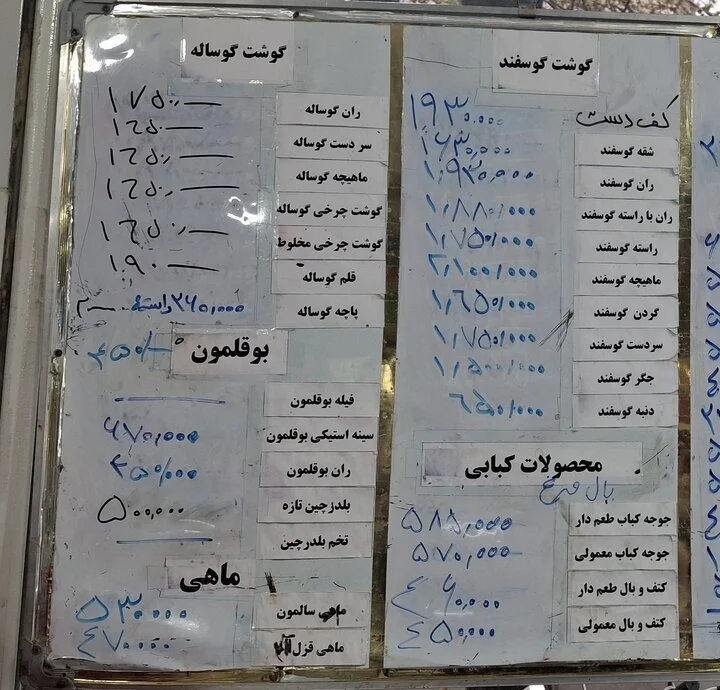 گوشت گوسفند
کف دست ۱۹۳۰.۰۰۰
شقه گوسفند ۱۶۳۰,۰۰۰
ران گوسفند ۱,۹۳۰,۰۰۰
ران با راسته گوسفند ۱,۸۸۰,۰۰۰
راسته گوسفند ۱,۷۵۰,۰۰۰
ماهیچه گوسفند ۲,۱۰۰,۰۰۰
گردن گوسفند ۱,۶۵۰,۰۰۰
سردست گوسفند ۱,۷۵۰,۰۰۰
جگر گوسفند ۱,۵۰۰,۰۰۰
دنبه گوسفند ۶۵۰,۰۰۰
محصولات کبابی
بال مرغ
جوجه کباب طعم دار ۵۸۵,۰۰۰
جوجه کباب معمولی ۵۷۰,۰۰۰
کتف و بال طعم دار ۴۶۰,۰۰۰
کتف و بال معمولی ۴۵۰,۰۰۰
گوشت گوساله
ران گوساله ۱۷۵۰,—
سر دست گوساله ۱۶۵۰—
ماهیچه گوساله ۱۶۵۰,—
گوشت چرخی گوساله ۱۶۵۰,—
گوشت چرخی مخلوط ۱۶۵۰,—
قلم گوساله ۱۹۰—
پاچه گوساله ۳۶۰,۰۰۰ راسته
بوقلمون ۴۵۰/—
فیله بوقلمون —
سینه استیکی بوقلمون ۶۷۰,۰۰۰
ران بوقلمون ۴۵۰,۰۰۰
بلدرچین تازه ۵۰۰,۰۰۰
تخم بلدرچین —
ماهی
ماهی سالمون ۵۳۰۰۰۰
ماهی قزل آلا ۴۷۰۰۰۰